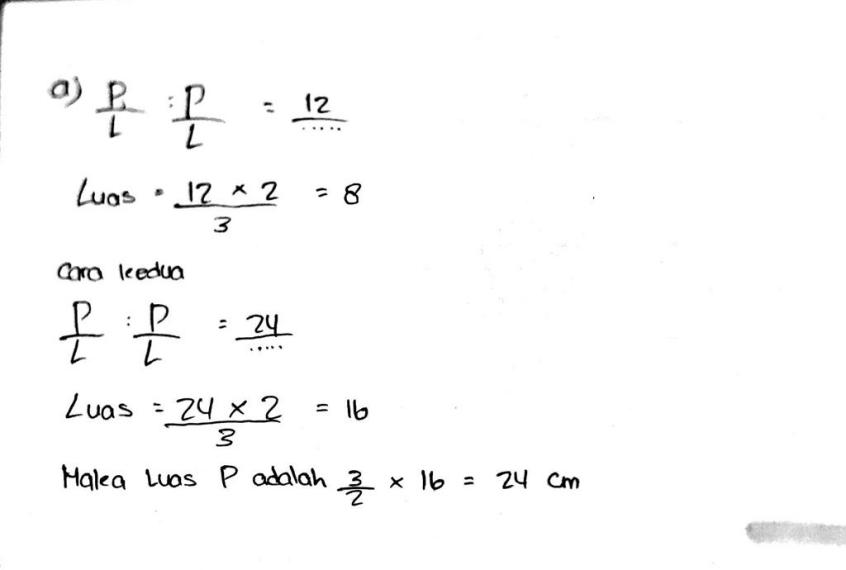 a) P/L : P/L = 12/.....
Luas = 12 × 2/3 = 8
Cara kedua
P/L : P/L = 24/.....
Luas = 24 × 2/3 = 16
Maka Luas P adalah 3/2 × 16 = 24 cm